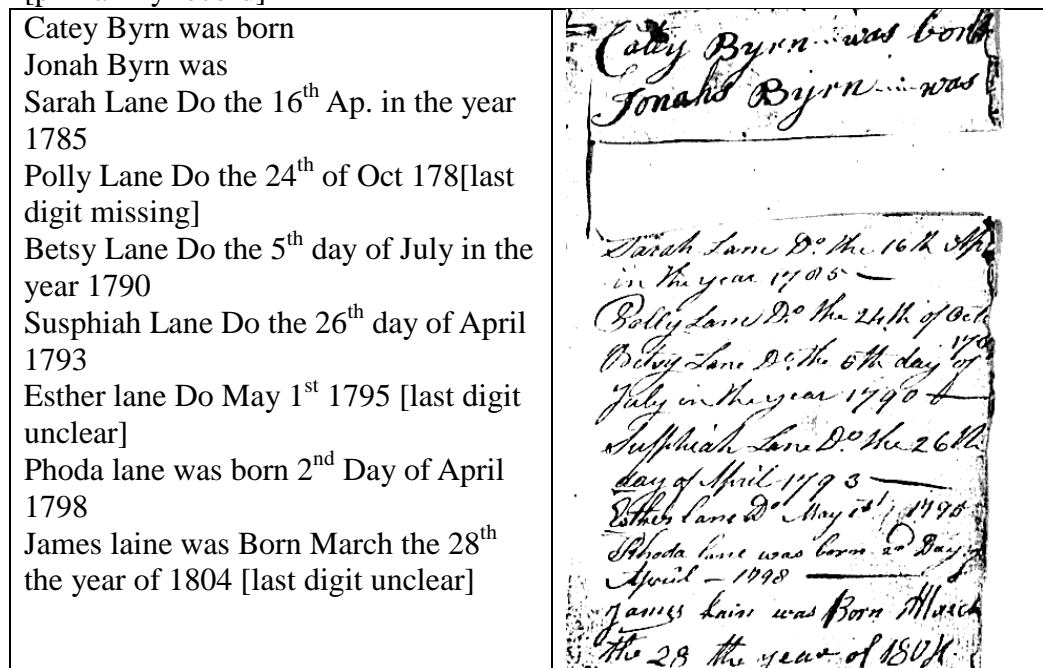 Catey Byrn was born
Jonah Byrn was
Sarah Lane Do the 16th Ap. in the year
1785
Polly Lane Do the 24th of Oct 178[last
digit missing]
Betsy Lane Do the 5th day of July in the
year 1790
Susphiah Lane Do the 26th day of April
1793
Esther lane Do May 1st 1795 [last digit
unclear]
Phoda lane was born 2nd Day of April
1798
James laine was Born March the 28th
the year of 1804 [last digit unclear]
Catey Byrn was born
Jonahs Byrn was
Sarah Lane Do. the 16th Ap
in the year 1785
Polly Lane Do. the 24th of Oct
178
Betsy Lane Do. the 5th day of
July in the year 1790
Susphiah Lane Do. the 26th
day of April 1793
Esther lane Do May 1st 1795
Rhoda lane was born 2nd Day
April - 1798
James Lain was Born March
the 28 the year of 180